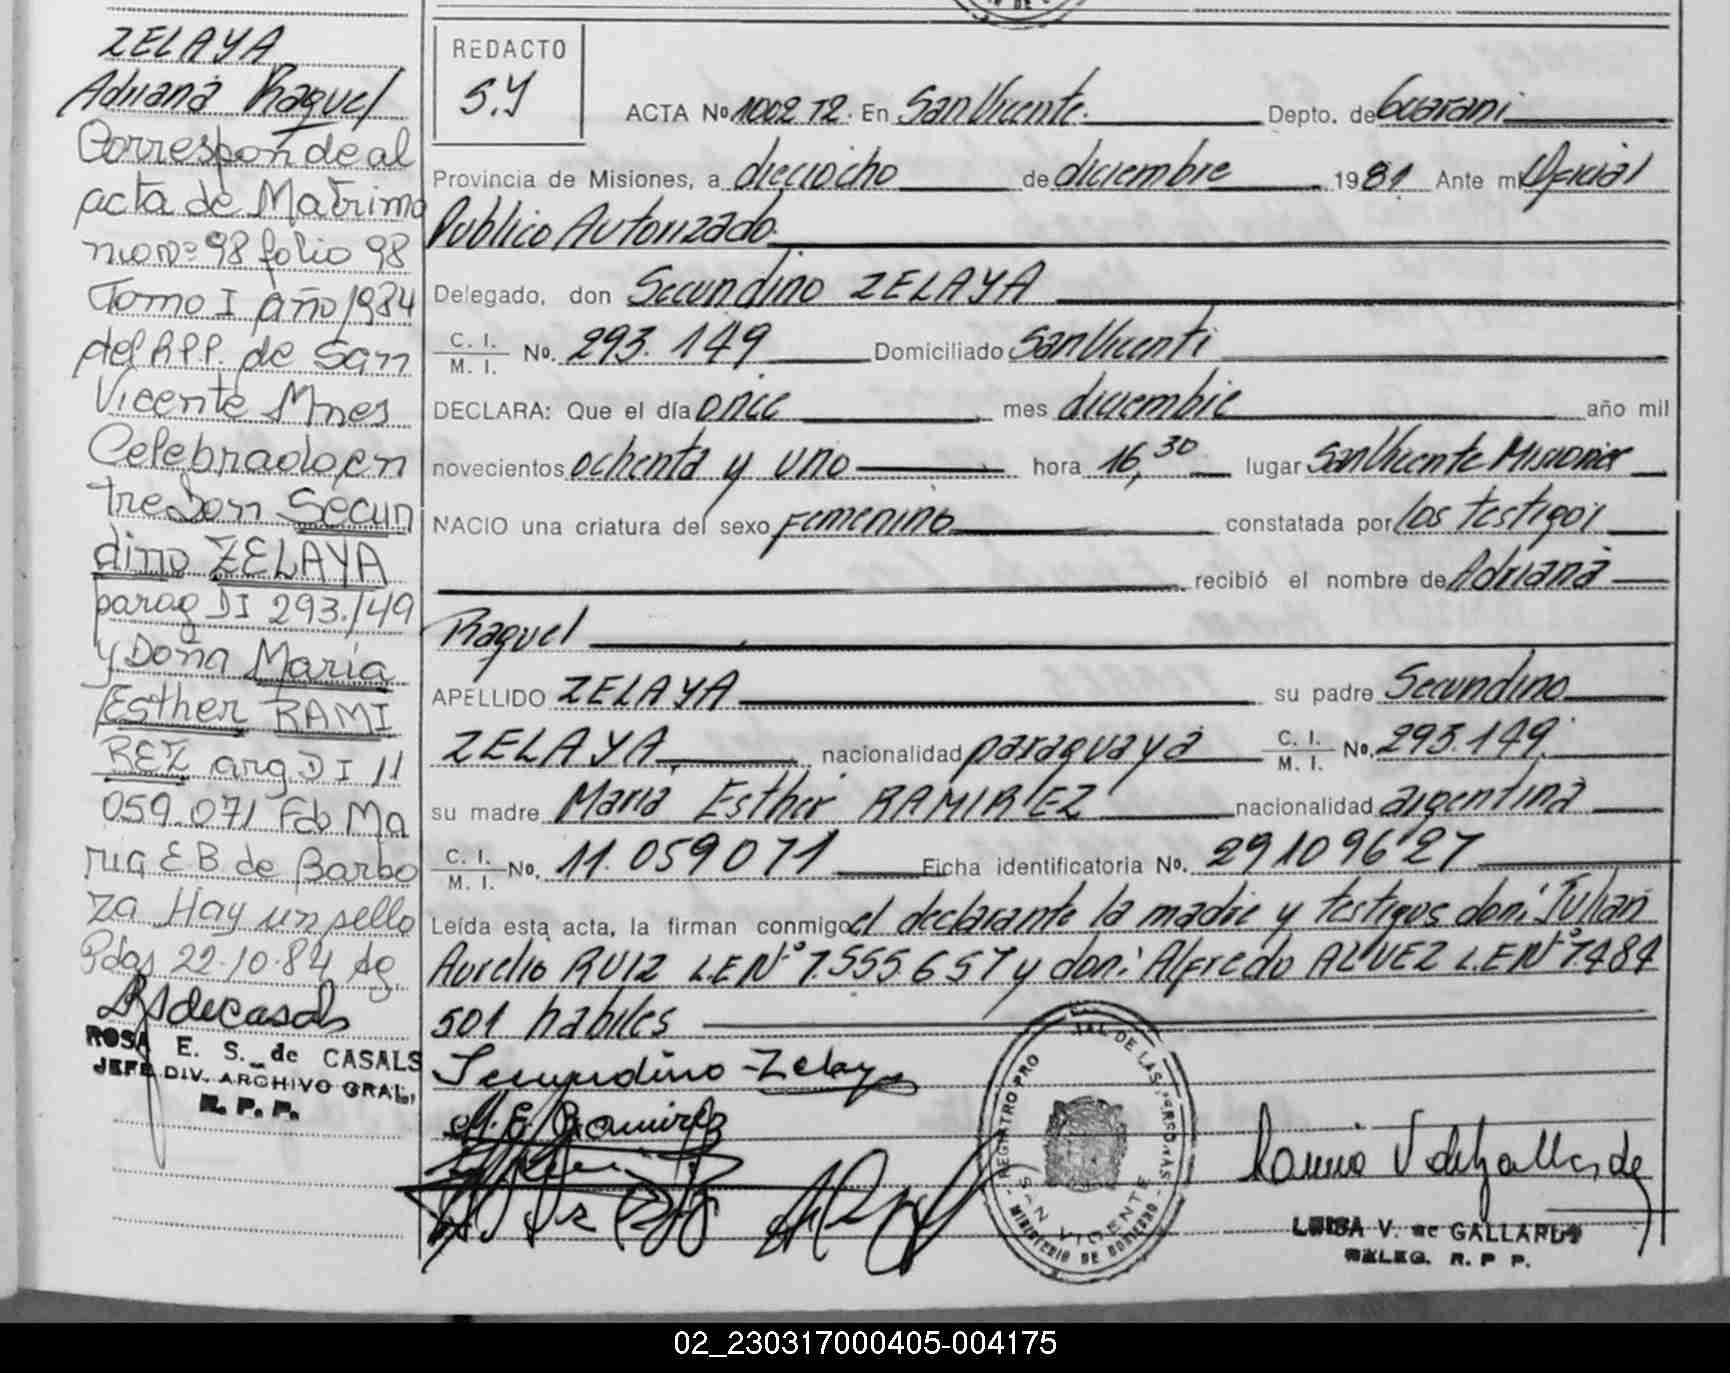 ZELAYA
Adriana Raquel
Corresponde al
acta de Matrimo
nio Nº 98 folio 98
Tomo I año 1984
del R.P.P. de San
Vicente Mnes
Celebrado en
tre Don Secun
dino ZELAYA
parag DI 293.149
y Doña María
Esther RAMI
REZ arg D I 11
059.071 Fdo Ma
ria E B de Barbo
za Hay un sello
Pdas 22-10-84 Ag.
ROSA E. S. de CASALS
JEFE DIV. ARCHIVO GRAL.
R. P. P.
REDACTO
S.Y
ACTA No 1002 T2. En San Vicente. Depto. de Guarani
Provincia de Misiones, a dieciocho de diciembre 1981 Ante mi Oficial
Publico Autorizado.
Delegado, don Secundino ZELAYA
C. I. M. I. No. 293.149 Domiciliado San Vicente
DECLARA: Que el día once mes diciembre año mil
novecientos ochenta y uno hora 16,30 lugar San Vicente Misiones
NACIO una criatura del sexo Femenino constatada por los testigos
recibió el nombre de Adriana
Raquel
APELLIDO ZELAYA su padre Secundino
ZELAYA nacionalidad paraguaya C. I. M. I. No. 293.149.
su madre Maria Esther RAMIREZ nacionalidad argentina
C. I. M. I. No. 11.059071 Ficha identificatoria No. 29109627
Leída esta acta, la firman conmigo el declarante la madre y testigos don: Julian
Aurelio RUIZ L.E Nº 7.555.657 y don: Alfredo ALVEZ L.E Nº 7484
501 habiles
Secundino Zelaya
M. E. Ramirez
REGISTRO PRO IAL DE LAS PERSONAS
SAN VICENTE
MINISTERIO DE GOBIERNO
LUISA V. de GALLARDO
DELEG. R. P P.
02_230317000405-004175